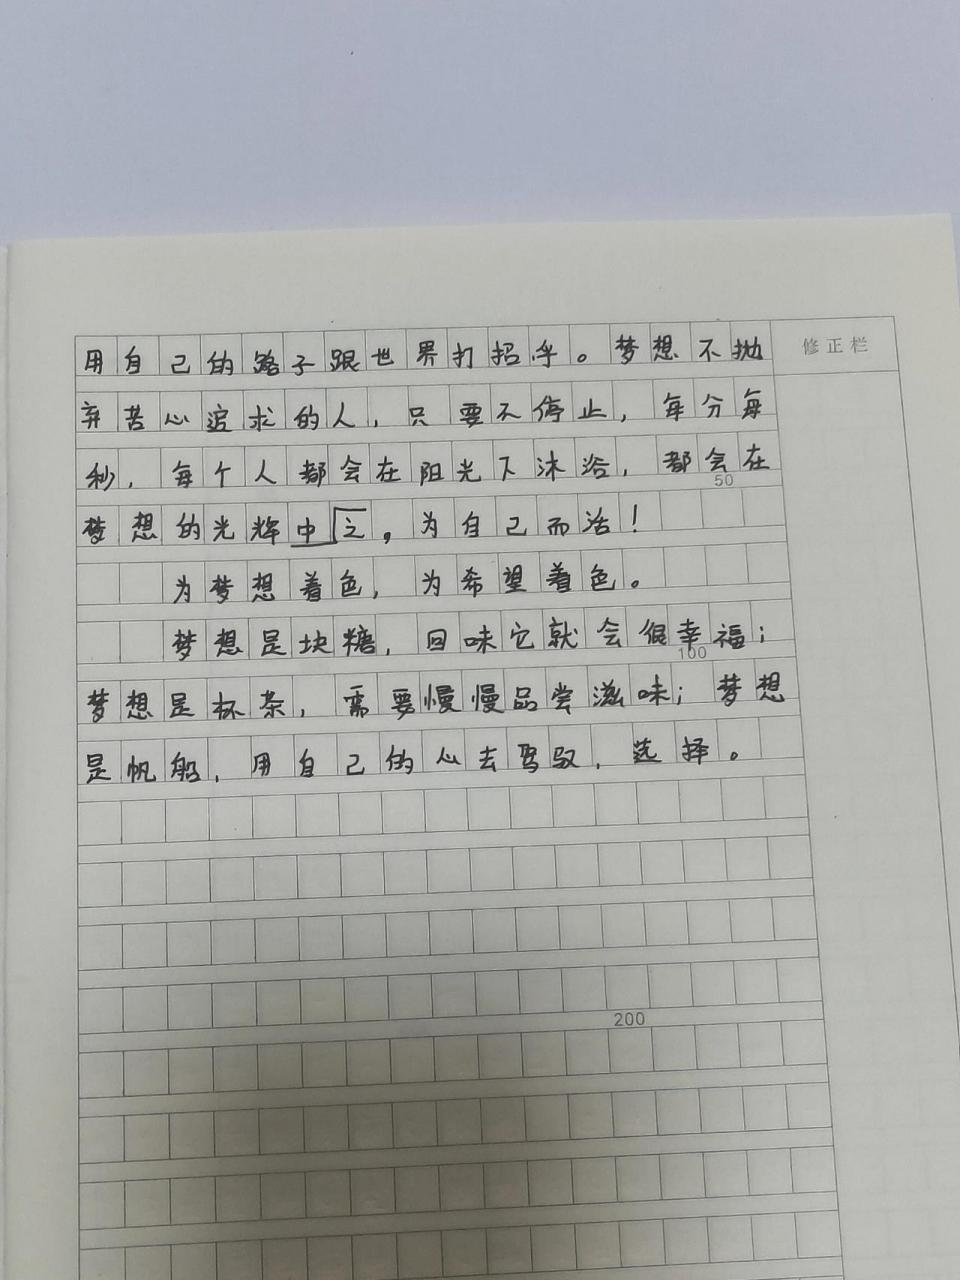 用自己的路子跟世界打招乎。梦想不抛
修正栏
弃苦心追求的人，只要不停止，每分每
秒，每个人都会在阳光下沐浴，都会在
50
梦想的光辉中之，为自己而活！
为梦想着色，为希望着色。
梦想是块糖，回味它就会很幸福；
100
梦想是杯茶，需要慢慢品尝滋味；梦想
是帆船，用自己的心去驾驭，选择。
200